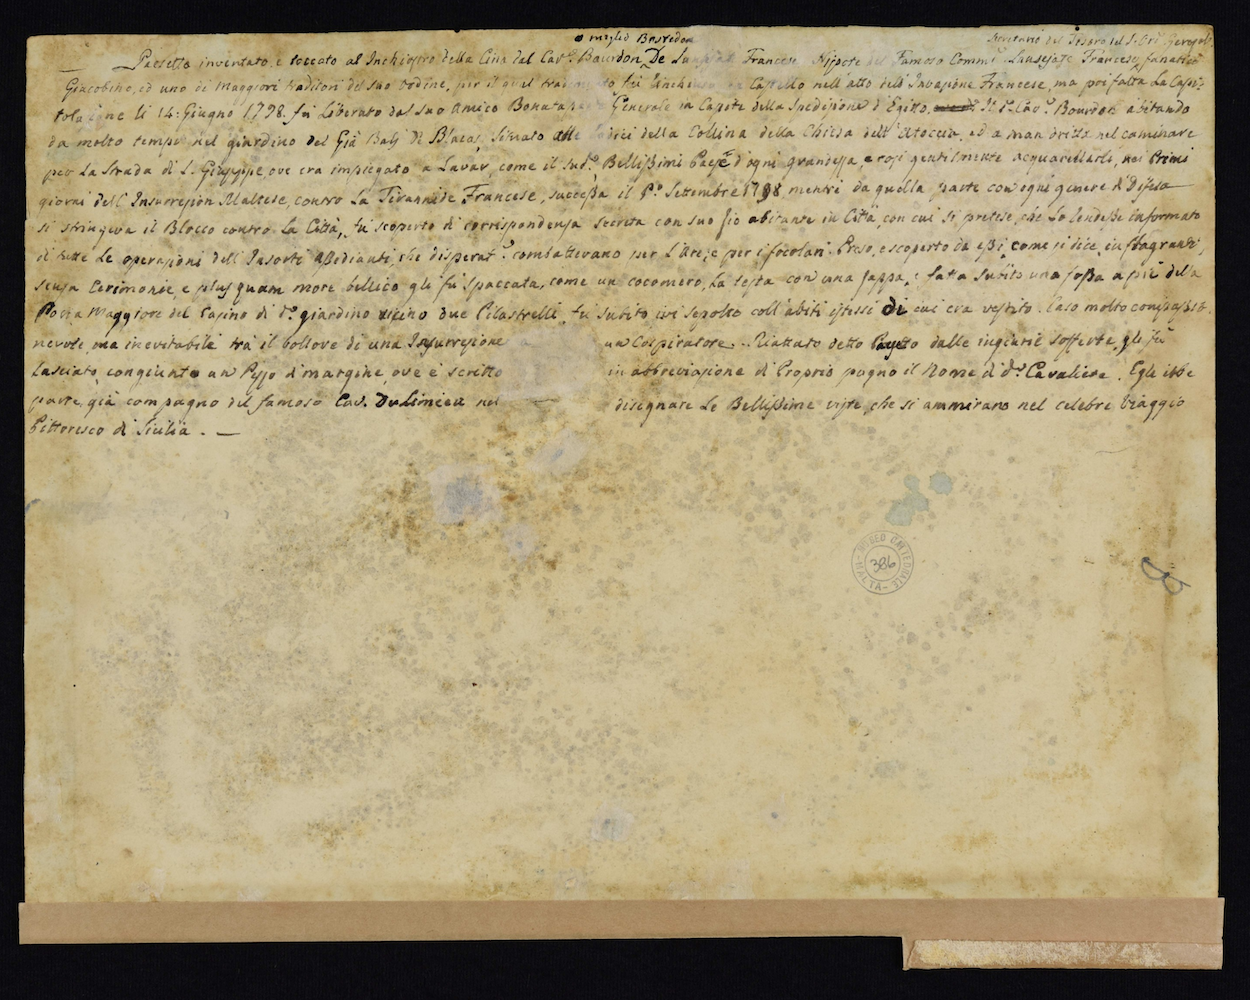 o meglio Boscredon
Secretario del Tesoro del S. Ord. Gerosol.
Paesetto inventato, e toccato al Inchiostro della Cina dal Cav.e Bourdon De Francese Nipote del Famoso Comm.r Francese, fanatico
Giacobino, ed uno de Maggiori traditori del suo Ordine, per il qual fu Castello nell'atto dell'Invasione Francese, ma poi fatta La Capi-
tolazione li 14. Giugno 1798. fu Liberato dal suo Amico Bonaparte Generale in Capite della Spedizione d'Egitto, Il d.o Cav.e Bourdon abitando
da molto tempo nel giardino del Già Balì de Blacas, Situato alle della Collina della Chiesa dell'Atoccia, ed a man dritta nel caminare
per La Strada di S. Giuseppe, ove era impiegato a Lavar, come il sud.o Bellissimi Paesi d'ogni grandezza, e così gentilmente acquarellarli, nei Primi
giorni dell'Insurrezion Maltese, contro La Tirannide Francese, successa il P.o Settembre 1798 mentre da quella parte con ogni genere di Difesa
si stringeva il Blocco contro La Città, fu scoperto di corrispondenza secreta con suo Zio abitante in Città, con cui si pretese, che Lo rendesse informato
di tutte Le operazioni dell'Insorti assedianti, che disperat.e combattevano per L'Are, e per i focolari. Preso, e scoperto da essi, come si dice, in flagranti,
senza Cerimonie, e plusquam more bellico gli fu spaccata, come un cocomero, La testa con una zappa, e fatta subito una fossa a piè della
Porta Maggiore del Casino di d.o giardino vicino due Pilastrelli, fu subito ivi sepolto coll'abiti istessi di cui era vestito. Caso molto compassio-
nevole, ma inevitabile tra il bollore di una Insurrezione a un Cospiratore. Riattato detto Paesetto dalle ingiurie sofferte, gli fu
Lasciato, congiunto un Pezzo di margine, ove è scritto in abbreviazione di Proprio pugno il Nome di d.o Cavaliere. Egli ebbe
parte, già compagno del famoso Cav. Dulimieu nel disegnare Le Bellissime viste, che si ammirano nel celebre Viaggio
Pittoresco di Sicilia. —
MUSEO CATTEDRALE
386
MALTA